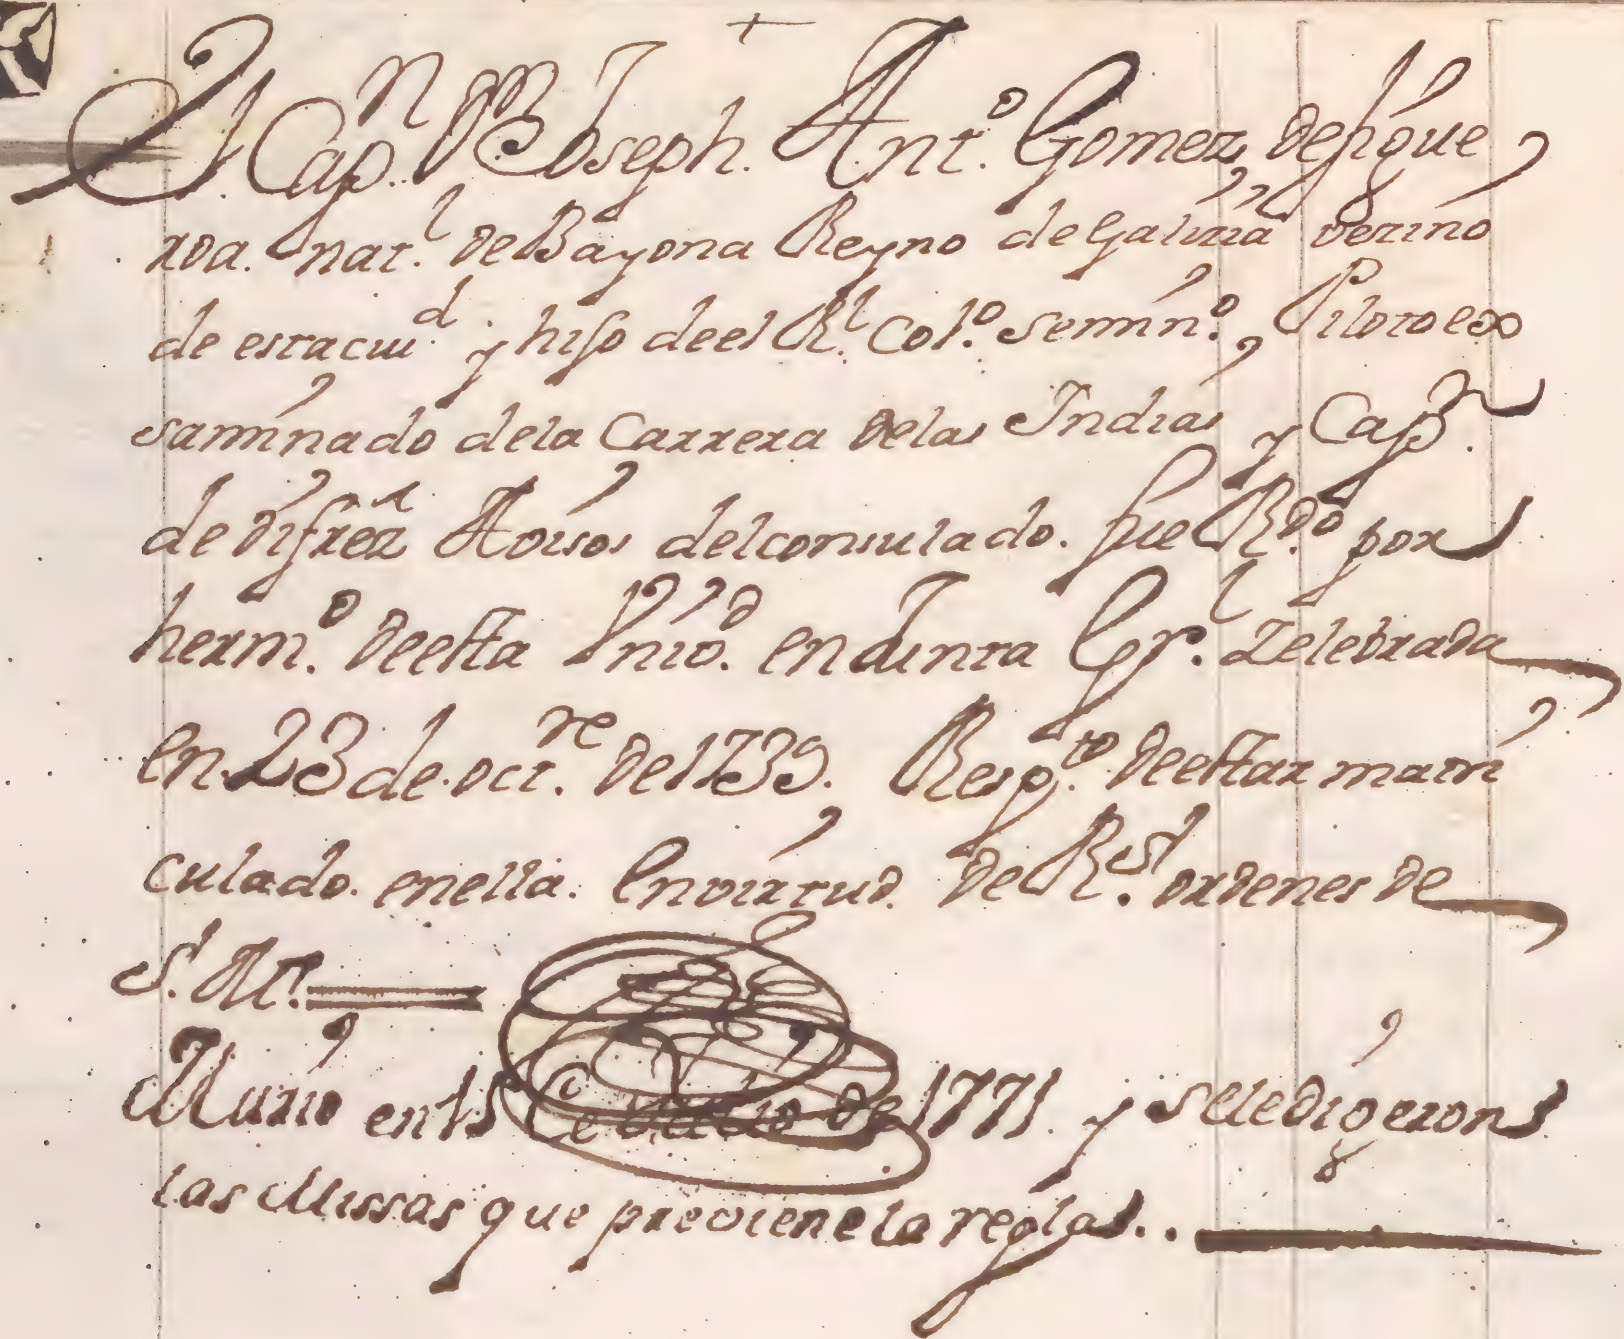 +
El Cap.n D.n Joseph. Ant.o Gomez, de figue
roa. nat.l de Bayona Reyno de Galizia vezino
de esta ciu.d y hijo de el R.l Col.o Semin.o, Piloto ex
saminado de la Carrera de las Indias y Cap.n
de difrez Avisos del consulado. fue R.do por
herm.o de esta Vnio.d en Junta Gr.l Zelebrada
en 23 de oct.re de 1739. Resp.to de estar matri
culado. en ella. en virtud. de R.s ordenes de
S. M.
Murio en 15 de de 1771. y se le digeron
las Missas que previene la regla..